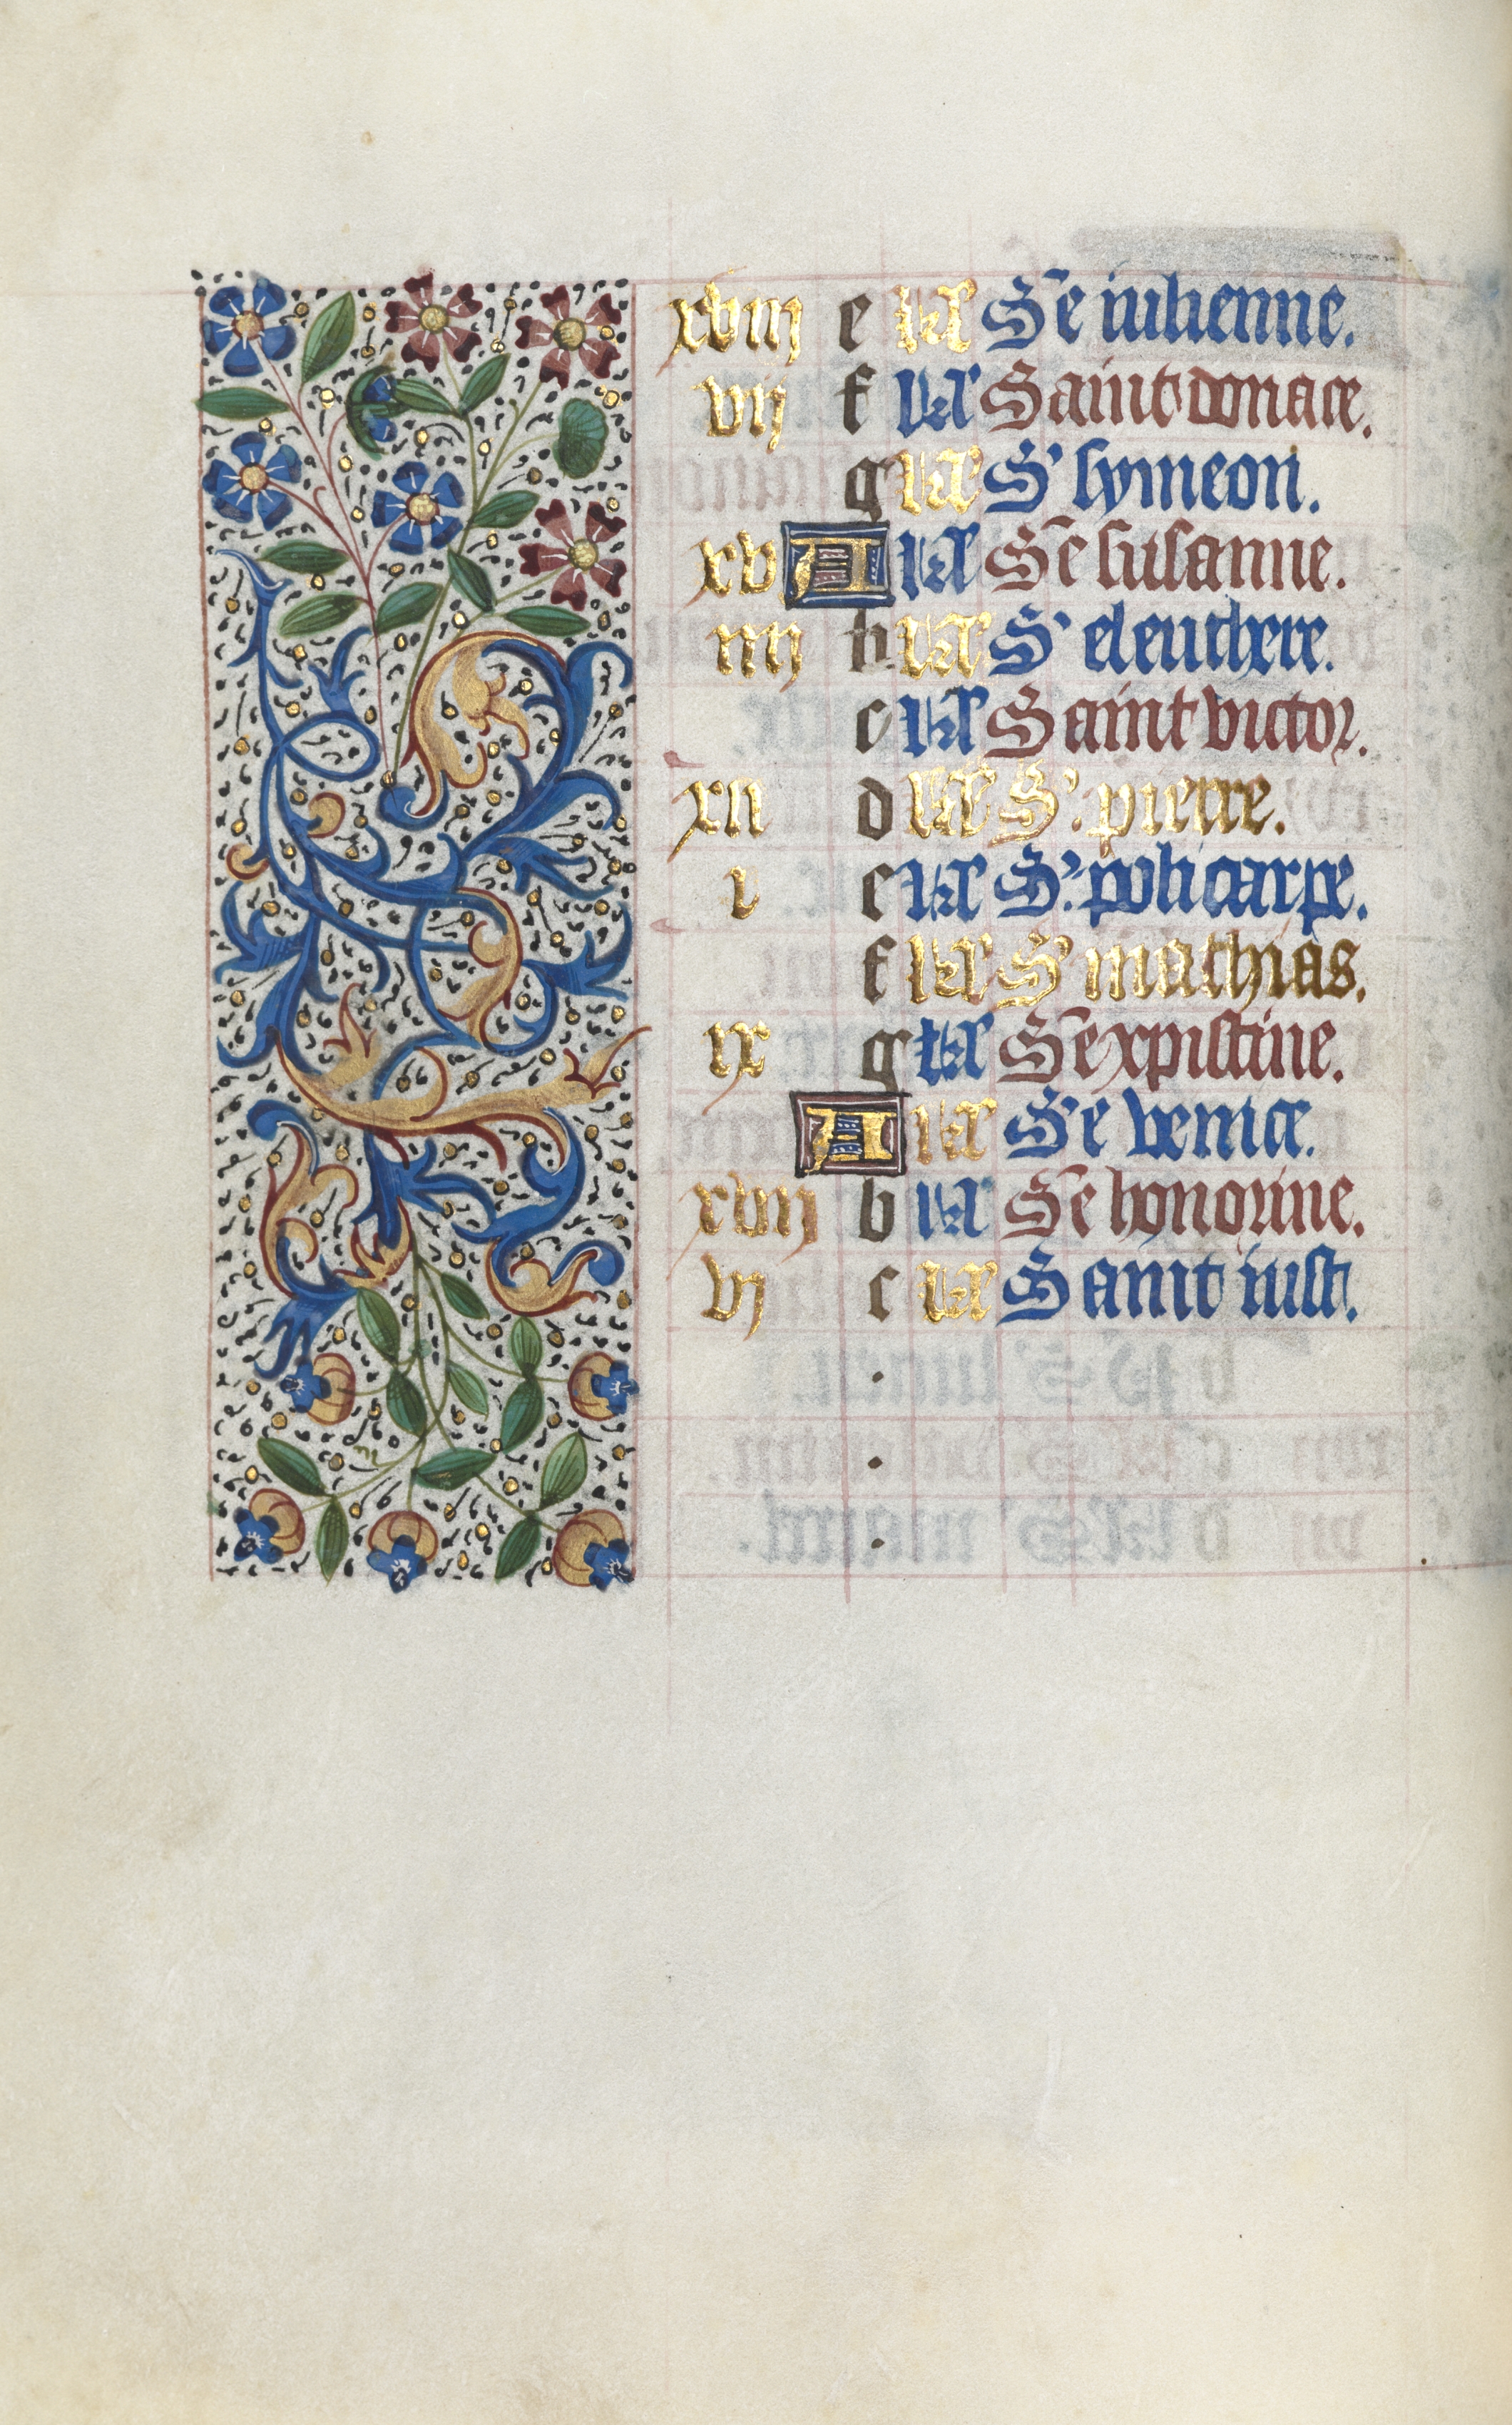 xviij e kł Sͤ iulienne.
vij f kł Saint donace.
g kł S' symeon.
xv A kł Sͤ susanne.
iiij b kł S' eleuthere.
c kł Saint victor.
xii d kł S'. pierre.
i e kł S'. policarpe.
f kł S' mathias.
ix g kł Sͤ xpistine.
A kł Sͤ venice.
xvij b kł Sͤ honorine.
vj c kł Saint iust.